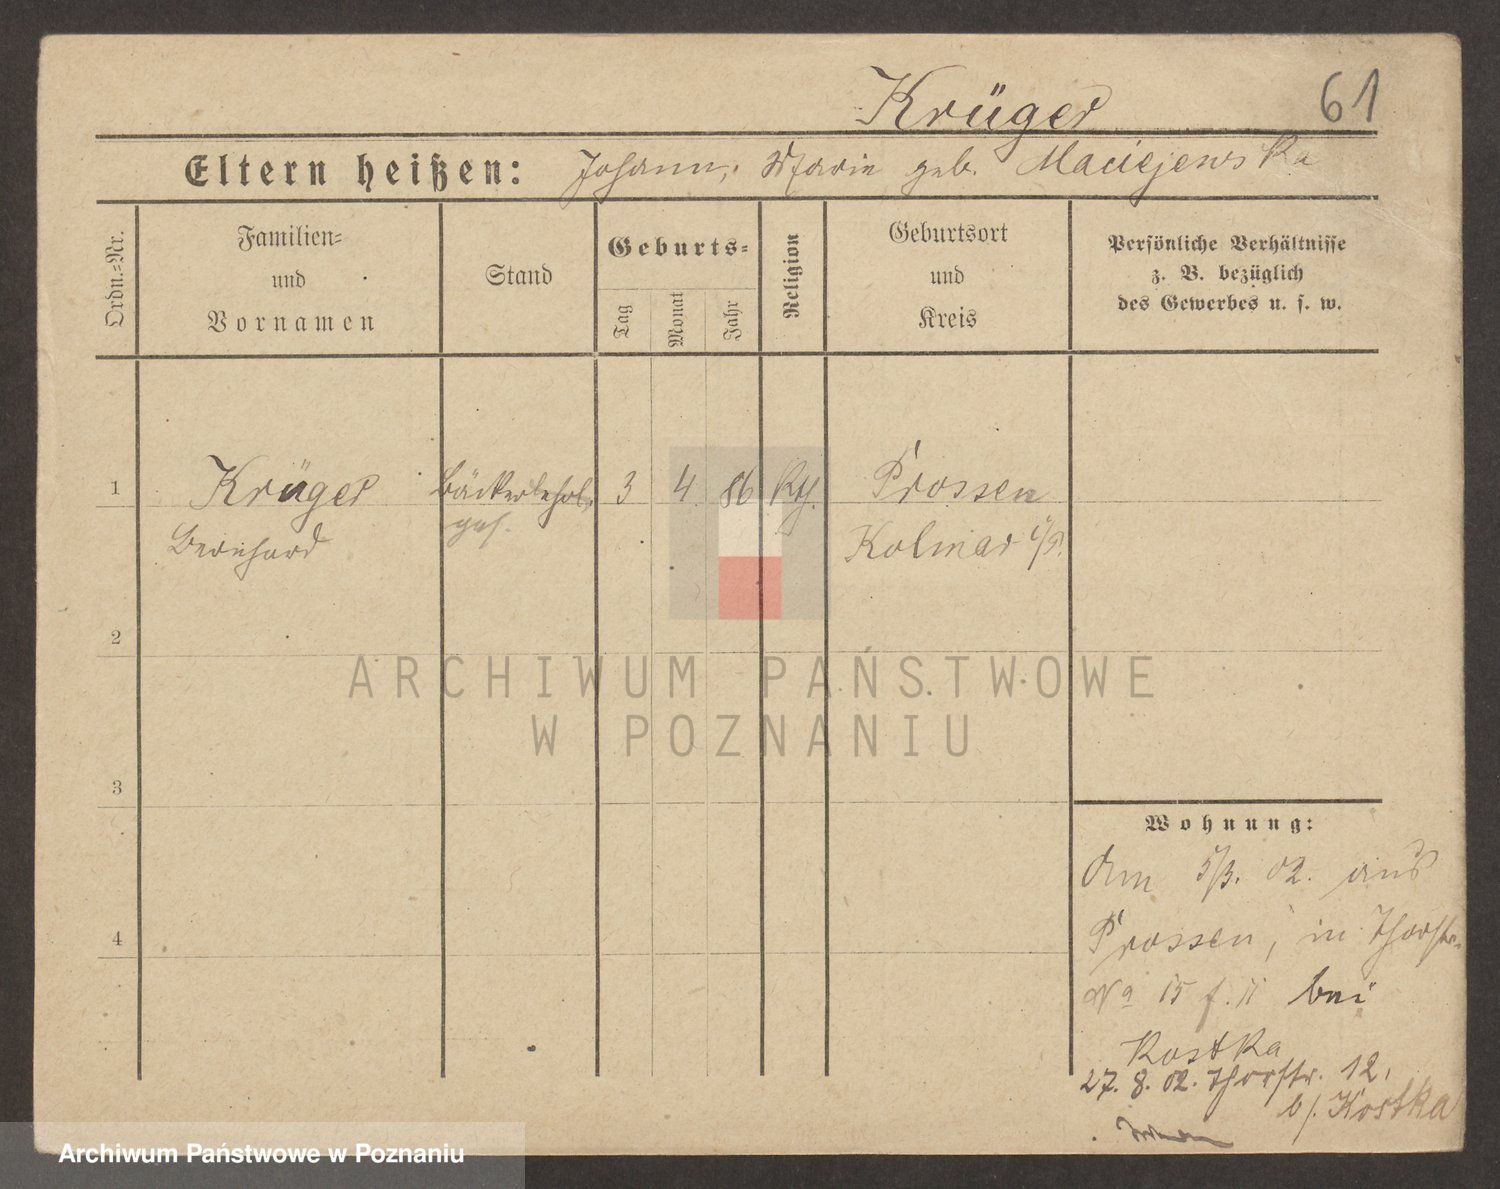 Krüger
61
Eltern heißen: Johann, Marie geb. Maciejewska
Ordn.=Nr.
Familien=
und
Vornamen
Stand
Geburts=
Tag
Monat
Jahr
Religion
Geburtsort
und
Kreis
Persönliche Verhältnisse
z. B. bezüglich
des Gewerbes u. s. w.
1 Krüger Bäckerlehrl. 3 4 86 Kth. Prossen
Bernhard Kolmar i/P.
2
3
4
Wohnung:
Am 5/3. 02. aus
Prossen, in Thorstr.
No 15 f. II bei
Kostka
27. 8. 02. Thorstr. 12,
b/. Kostka
ARCHIWUM PAŃSTWOWE
W POZNANIU
Archiwum Państwowe w Poznaniu